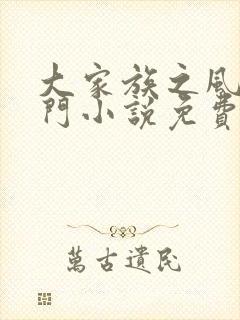 大家族之風
門小說免費
萬古遺民